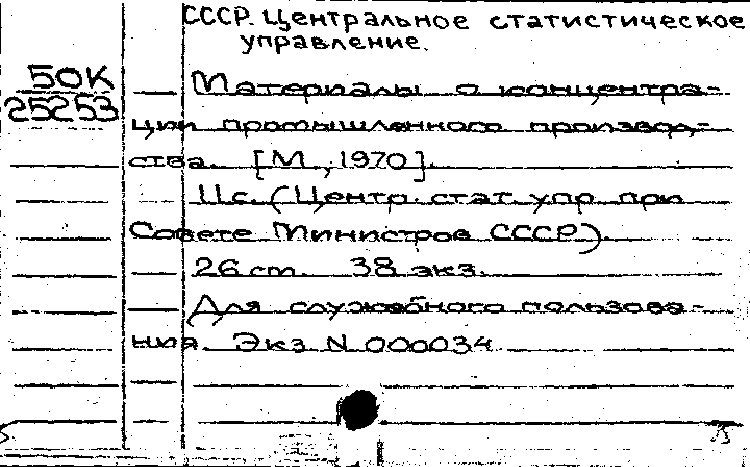 СССР. Центральное статистическое
управление.
50К
25253
Материалы о концентра-
ции промышленного производ-
ства. [М., 1970].
11с. (Центр. стат. упр. при
Совете Министров СССР).
26 cm. 38 экз.
Для служебного пользова-
ния. Экз. N 000034